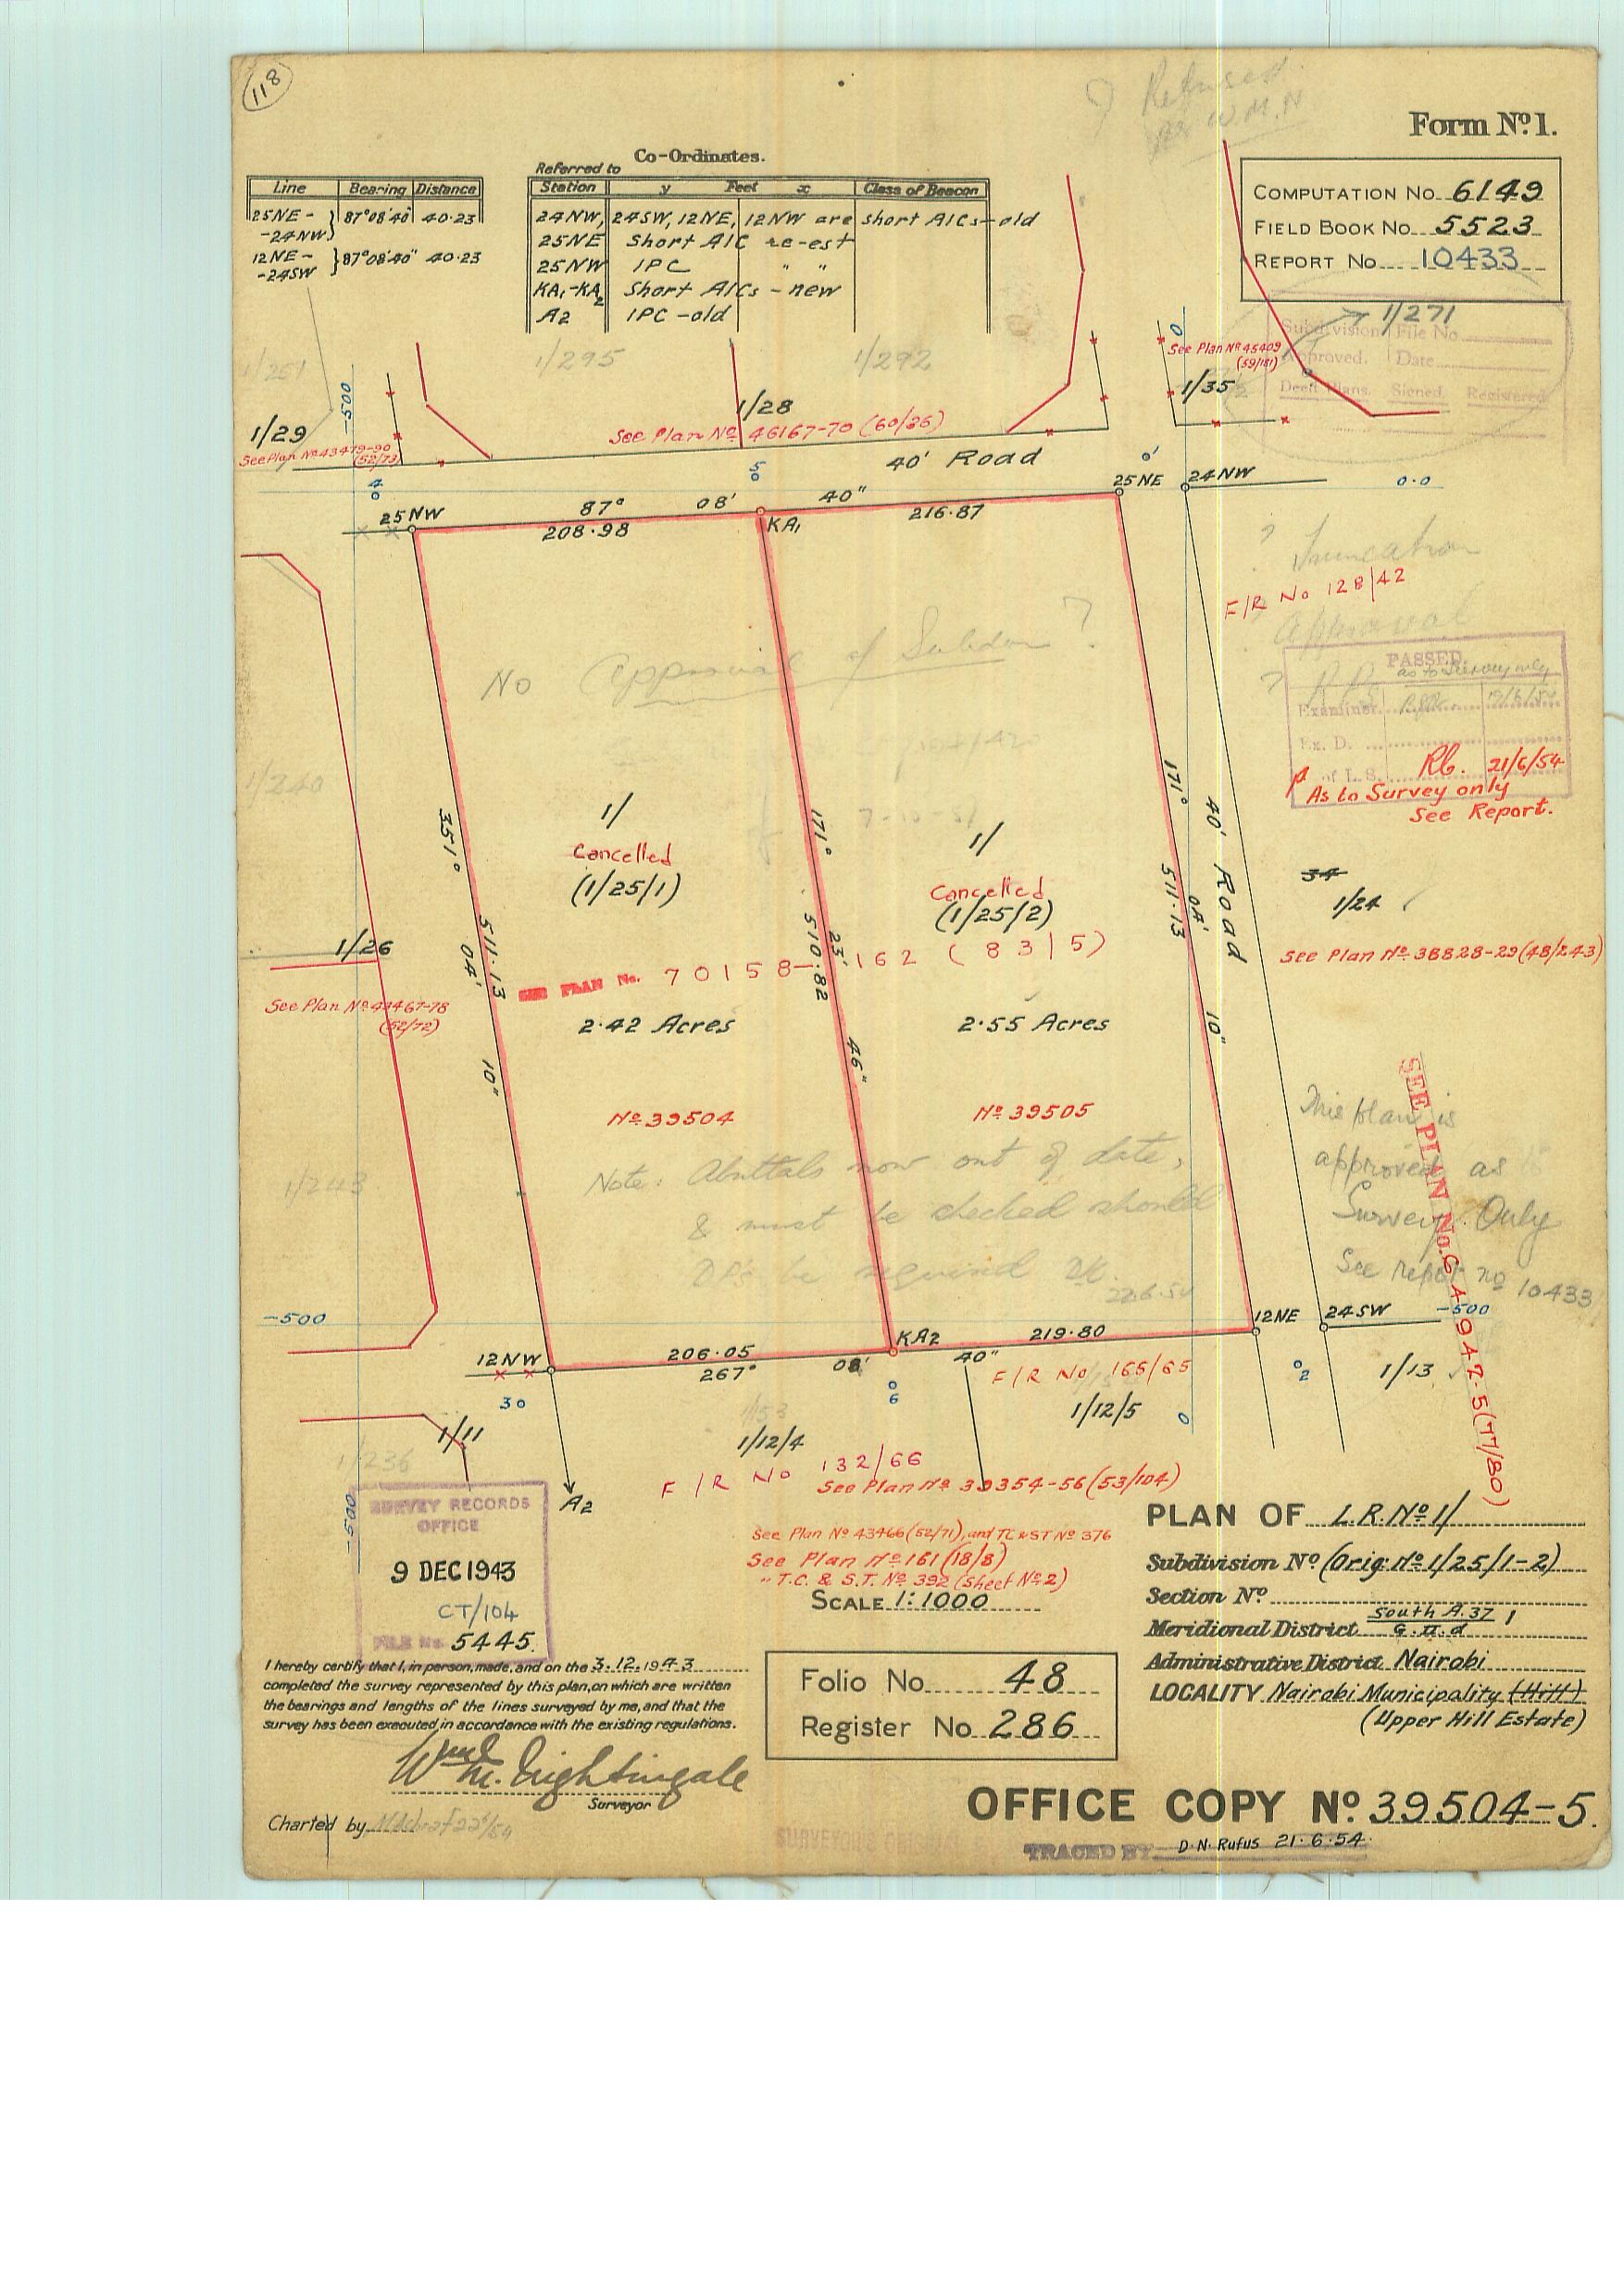 118
Form Nº 1.
COMPUTATION No. 6149
FIELD BOOK No. 5523
REPORT No. 10433
Co-Ordinates.
Line Bearing Distance
25NE - -24NW } 87°08'40" 40.23
12NE - -24SW } 87°08'40" 40.23
Referred to
Station y Feet x Class of Beacon
24NW, 24SW, 12NE, 12NW are short AICs - old
25NE Short AIC re-est
25NW IPC " "
KA1-KA2 Short AICs - new
A2 IPC - old
1/271
Subdivision File No.
Approved. Date
Deed Plans. Signed. Registered
1/295
1/292
See Plan Nº 45409
(59/181)
1/35
1/28
See Plan Nº 46167-70 (60/36)
1/29
See Plan Nº 43479-90
(52/73)
-500
0
40' Road
25NE
24NW
0.0
25NW
87° 08' 40"
208.98
KA1
216.87
? Truncation
F/R No 128/42
Approval
No Approval of Subdvn ?
PASSED
as to Survey only
Examiner
Ex. D.
of L.S. Rb. 21/6/54
As to Survey only
See Report.
1/240
1/
Cancelled
(1/25/1)
1/
Cancelled
(1/25/2)
351° 04' 10"
511.13
171° 23' 46"
510.82
171° 04' 10"
511.13
40' Road
34
1/24
See Plan Nº 38828-29 (48/243)
1/26
See Plan Nº 43467-78
(52/72)
SEE PLAN No. 70158-162 (83/5)
2.42 Acres
2.55 Acres
Nº 39504
Nº 39505
1/243
Note: Abuttals now out of date,
& must be checked should
DPs be required
22.6.54
This plan is
approved as to
Survey Only
See report no 10433
SEE PLAN No. 64942-5 (77/80)
-500
12NE
24SW
-500
KA2
219.80
12NW
206.05
267° 08' 40"
F/R No 165/65
1/13
1/12/5
1/12/4
1/11
1/236
F/R No 132/66
See Plan Nº 39354-56 (53/104)
A2
-500
SURVEY RECORDS
OFFICE
9 DEC 1943
CT/104
FILE No. 5445
See Plan Nº 43466 (52/71), and TC & ST Nº 376
See Plan Nº 161 (18/8)
" T.C. & S.T. Nº 392 (Sheet Nº 2)
SCALE 1:1000
PLAN OF L.R. Nº 1/
Subdivision Nº (Orig. Nº 1/25/1-2)
Section Nº
Meridional District South A.37 1
G.II.d
Administrative District Nairobi
LOCALITY Nairobi Municipality (Hill)
(Upper Hill Estate)
I hereby certify that I, in person, made, and on the 3.12.1943
completed the survey represented by this plan, on which are written
the bearings and lengths of the lines surveyed by me, and that the
survey has been executed in accordance with the existing regulations.
Wm M. Nightingale
Surveyor
Charted by
Folio No. 48
Register No. 286
OFFICE COPY Nº 39504-5.
TRACED BY D.N. Rufus 21.6.54.